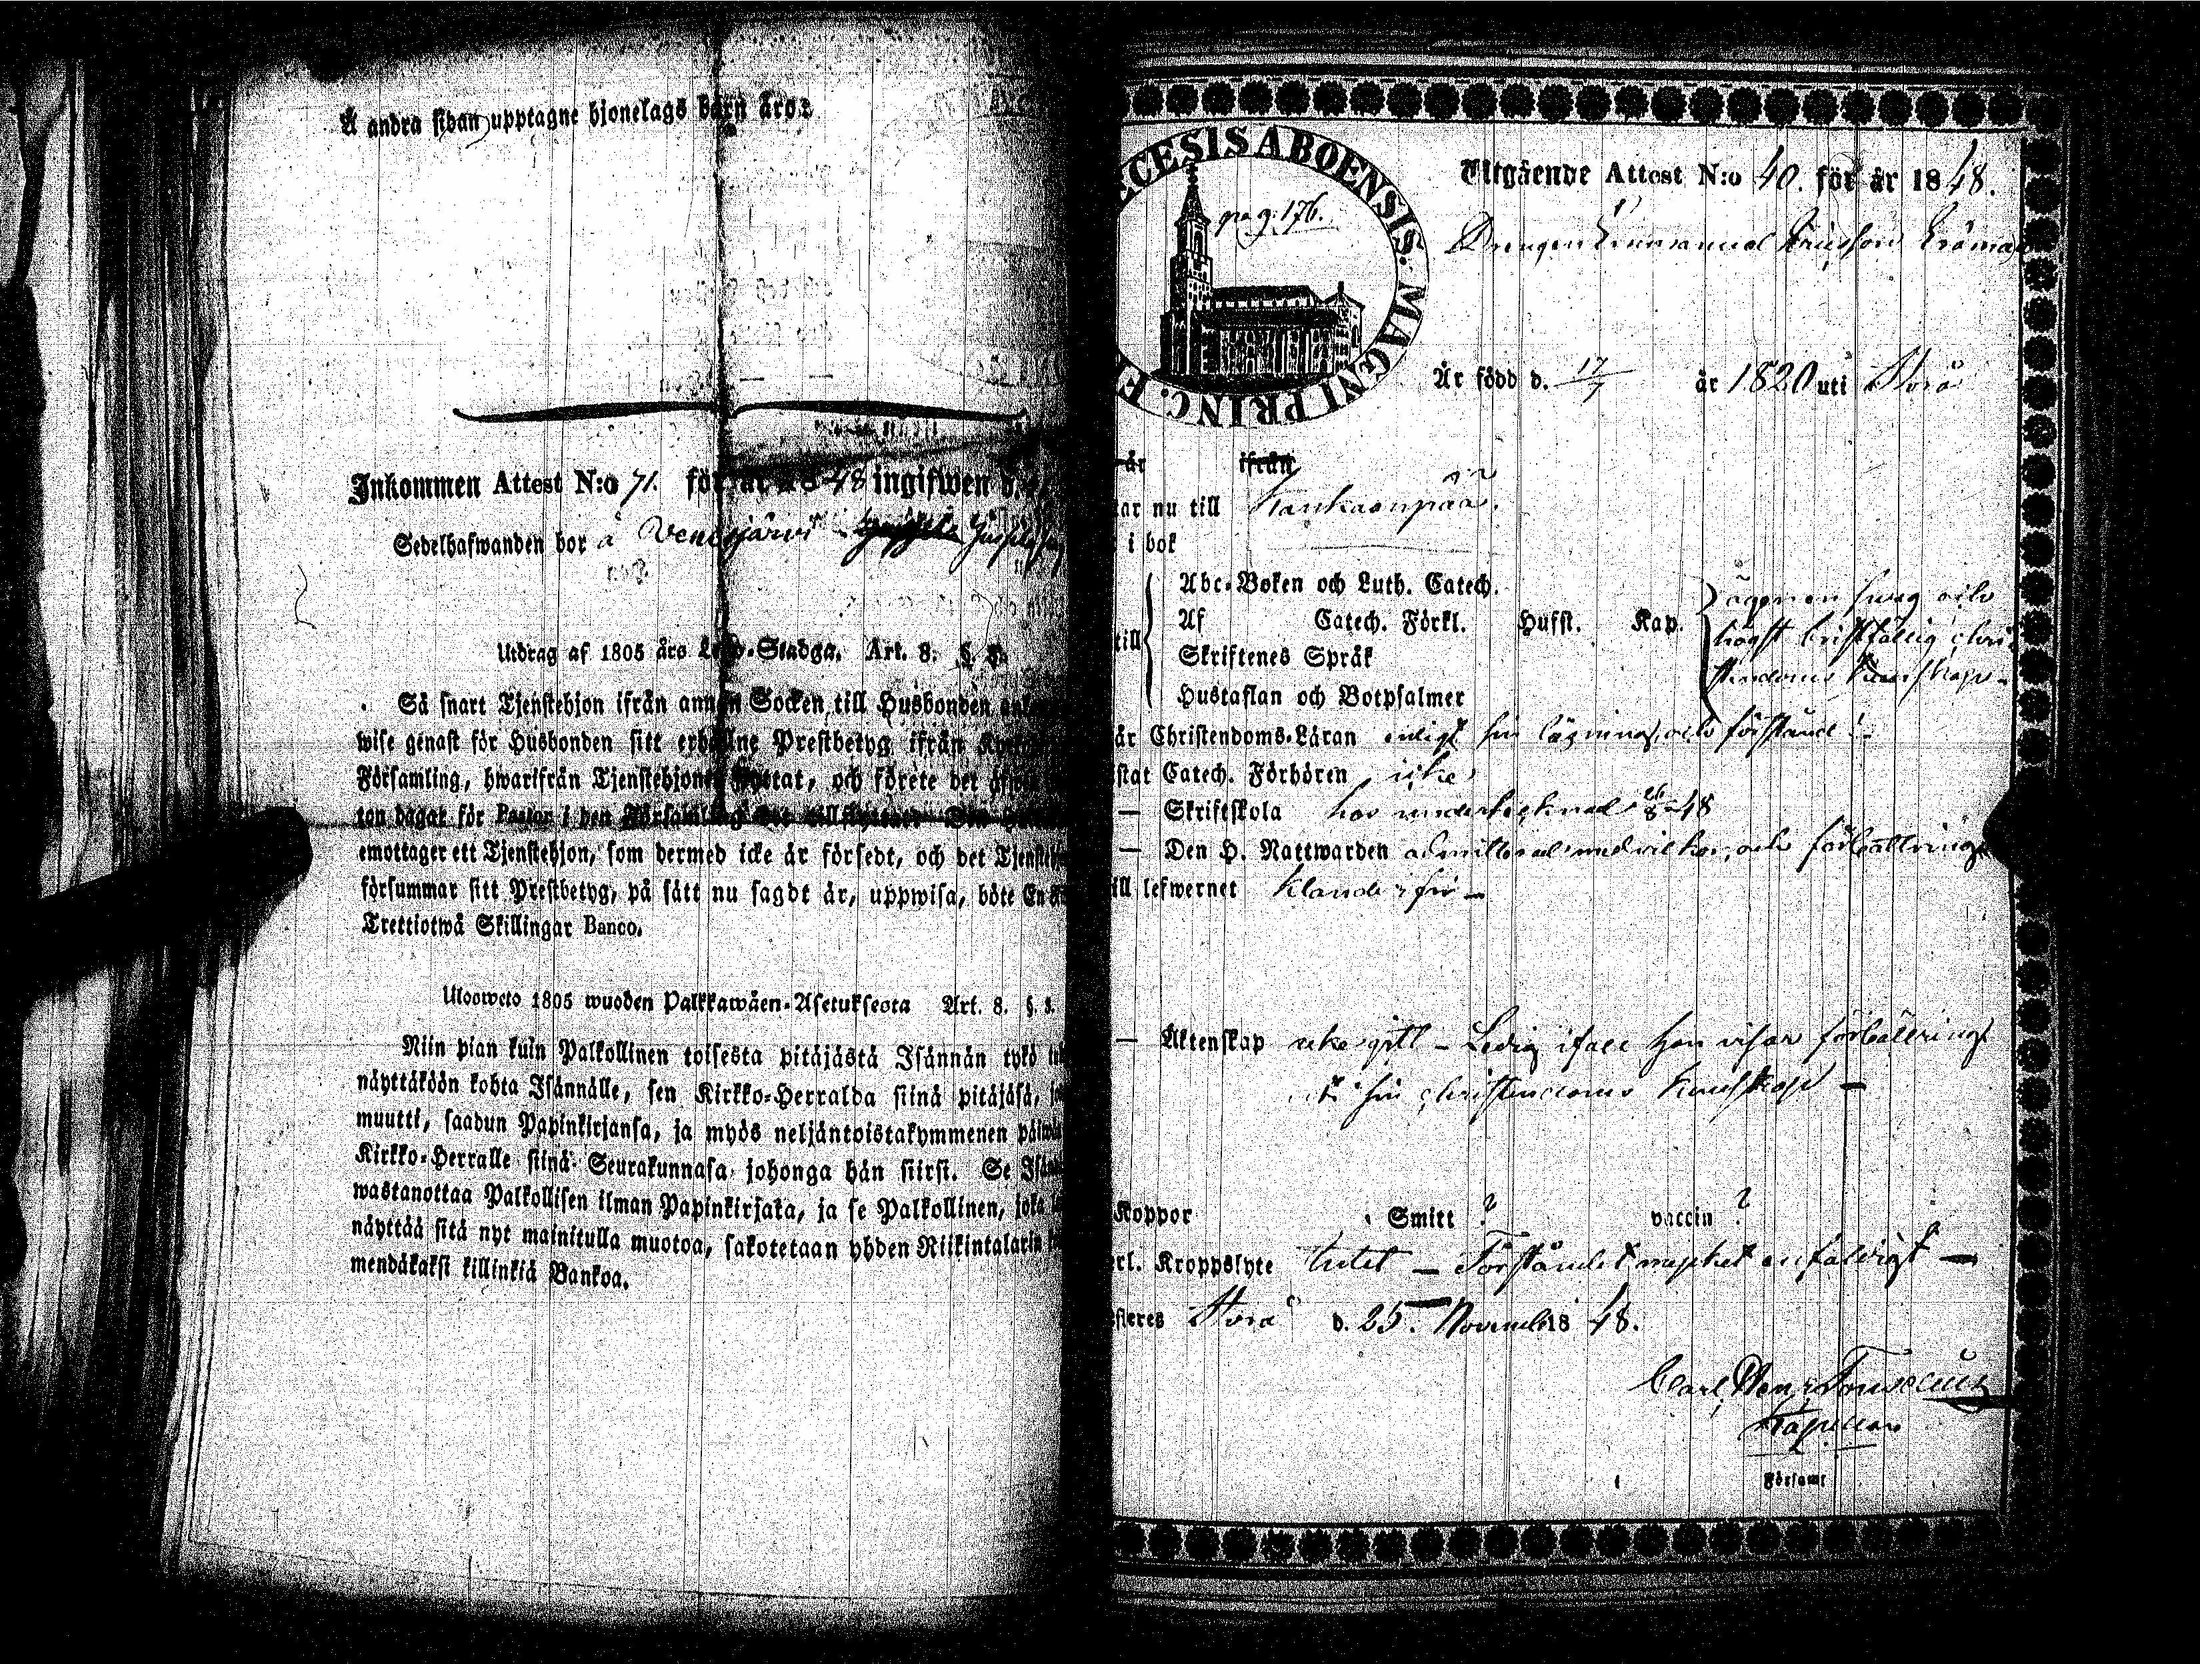 Å andra sidan upptagne hjonelags barn äro:
Inkommen Attest N:o 71. för år 1848 ingifwen d.
Sedelhafwanden bor å Venesjärvi
Utdrag af 1805 års Lego-Stadga. Art. 8. §. 3.
Så snart Tjenstehjon ifrån annan Socken till Husbonden
wise genast för Husbonden sitt erhållne Prestbetyg ifrån
Församling, hwarifrån Tjenstehjonet flyttat, och förete det
ton dagar för Pastor i den Församling det till flyttar. Den
emottager ett Tjenstehjon, som dermed icke är försedt, och det
försummar sitt Prestbetyg, på sätt nu sagdt är, uppwisa, böte En
Trettiotwå Skillingar Banco.
Uloosweto 1805 wuoden Palkkawäen-Asetuksesta Art. 8. §. 3.
Niin pian kuin Palkollinen toisesta pitäjästä Isännän tykö
näyttäköön kohta Isännälle, sen Kirkko-Herralda siinä pitäjäsä,
muutti, saadun Papinkirjansa, ja myös neljäntoistakymmenen
Kirkko-Herralle siinä Seurakunnasa johonga hän siirsi. Se
wastanottaa Palkollisen ilman Papinkirjata, ja se Palkollinen, joka
näyttää sitä nyt mainitulla muotoa, sakotetaan yhden Riikintalarin
mendäkaksi killinkiä Bankoa.
ECESIS ABOENSIS. MAGNI PRINC. F
pag. 176.
Utgående Attest N:o 40. för år 1848.
Drengen Emmanuel Ericsson
Är född d. 17/7 år 1820 uti Storå
är ifrån
ar nu till Kankaanpää.
i bok
till
Abc-Boken och Luth. Catech.
Af Catech. Förkl. Hufst. Kap.
Skriftenes Språk
Hustaflan och Botpsalmer
ägen en swag och
högst bristfällig chri-
stendoms kunskap -
är Christendoms-Läran enligt sin läsning och förstånd
stat Catech. Förhören icke
— Skriftskola hos undertecknad 26/8 -48
— Den H. Nattwarden admitterad med vilkor och förbättring
ill lefwernet klanderfri —
— Äktenskap icke gift - Ledig ifall han visar förbättring
i sin christendoms kunskap —
Koppor Smitt ? vaccin ?
rl. Kroppslyte Intet — Förståndet mycket enfaldigt —
steres Storå d. 25. November 1848.
Carl
Kapellan
Församl